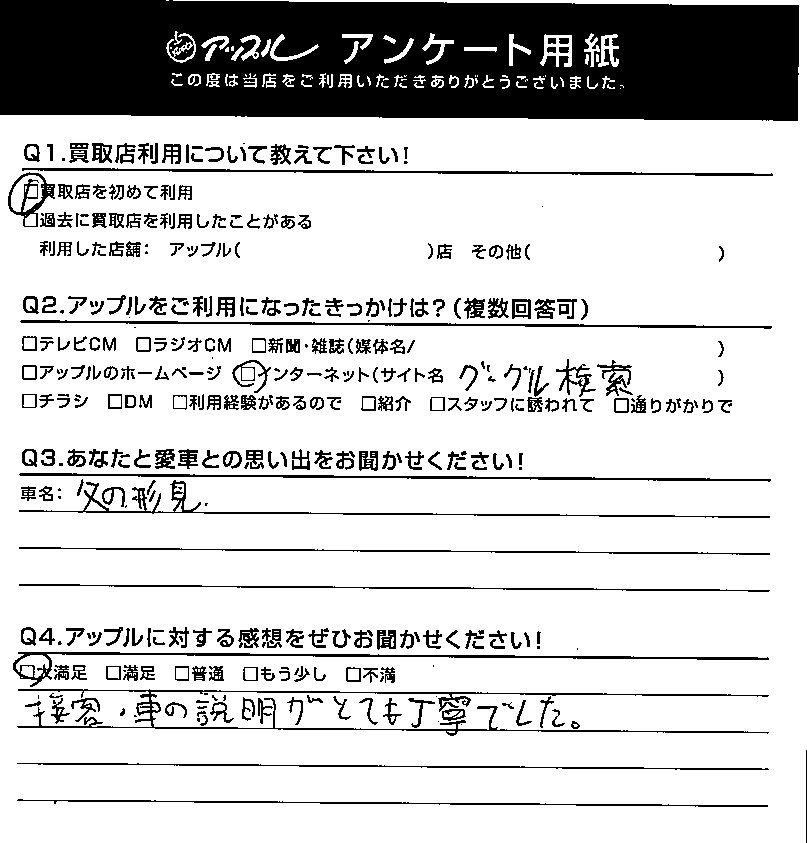 アップル アンケート用紙
この度は当店をご利用いただきありがとうございました。
Q1.買取店利用について教えて下さい!
□買取店を初めて利用
□過去に買取店を利用したことがある
利用した店舗: アップル( )店 その他( )
Q2.アップルをご利用になったきっかけは?(複数回答可)
□テレビCM □ラジオCM □新聞・雑誌(媒体名/ )
□アップルのホームページ □インターネット(サイト名 グーグル検索 )
□チラシ □DM □利用経験があるので □紹介 □スタッフに誘われて □通りがかりで
Q3.あなたと愛車との思い出をお聞かせください!
車名: 父の形見.
Q4.アップルに対する感想をぜひお聞かせください!
□大満足 □満足 □普通 □もう少し □不満
接客・車の説明がとても丁寧でした。